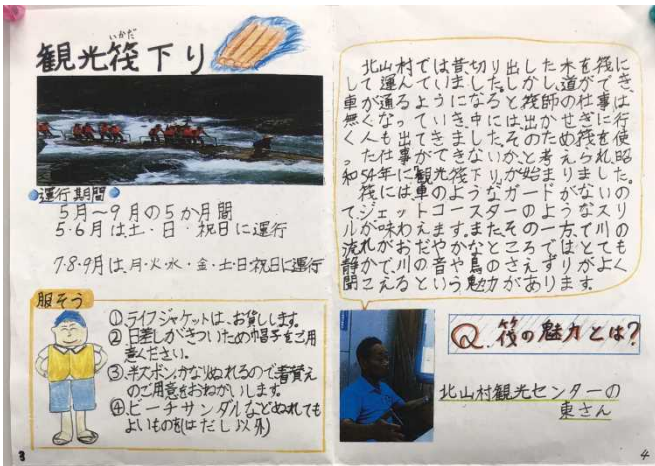 いかだ
観光筏下り
運行期間
5月〜9月の5か月間
5・6月は土・日・祝日に運行
7・8・9月は、月・火・水・金・土・日・祝日に運行
服そう
①ライフジャケットは、お貸しします。
②日差しがきついため帽子をご用
意ください。
③半ズボンかなりぬれるので着替え
のご用意をおねがいします。
④ビーチサンダルなどぬれても
よいものを(はだし以外)
3
北山村では昔、切り出した木を筏に
して運んでいました。しかし、道ができ、
車が通るようになると、筏師の仕事は
無くなっていき、中には、出かせぎに行
く人も出てきました。そのため、筏を使
った仕事ができないか、と考えられ、昭
和54年に「観光筏下り」が始まりました。
筏には、車のようなガードがないの
でジェットコースターのようなスリ
ルが味わえます。またその一方で、川の
流れがおだやかなところでは、とても
静かで、川の音や鳥のさえずりがよく
聞こえるという魅力があります。
Q.筏の魅力とは?
北山村観光センターの
東さん
4